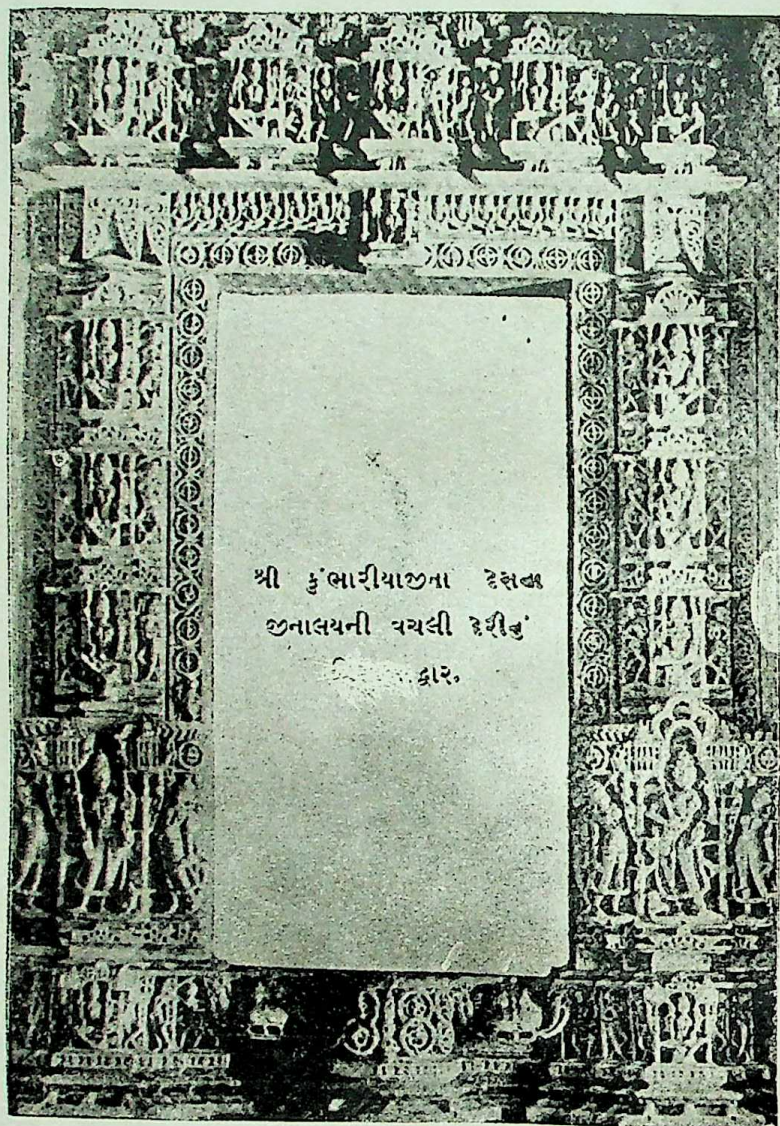 શ્રી કુંભારીયાજીના દેસના
જીનાલયની વચલી દેરીનું
દ્વાર.